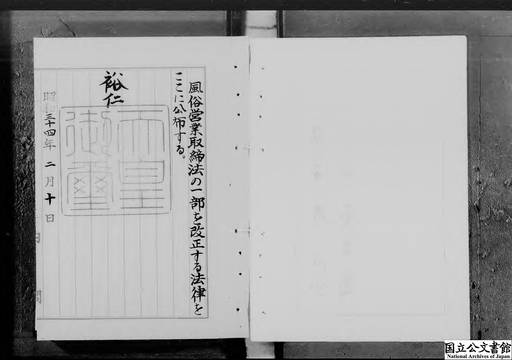 風俗営業取締法の一部を改正する法律を
ここに公布する。
裕仁
天皇
御璽
昭和三十四年二月十日
国立公文書館
National Archives of Japan